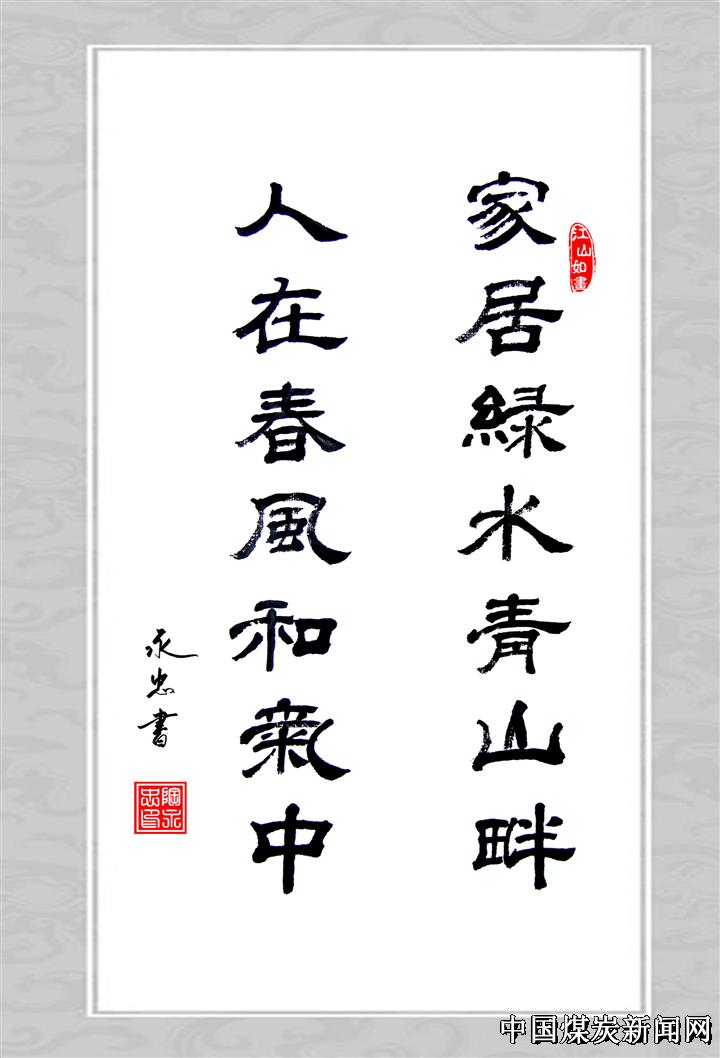 江山如畫
家居綠水青山畔
人在春風和氣中
永忠書
陶永忠印
中国煤炭新闻网